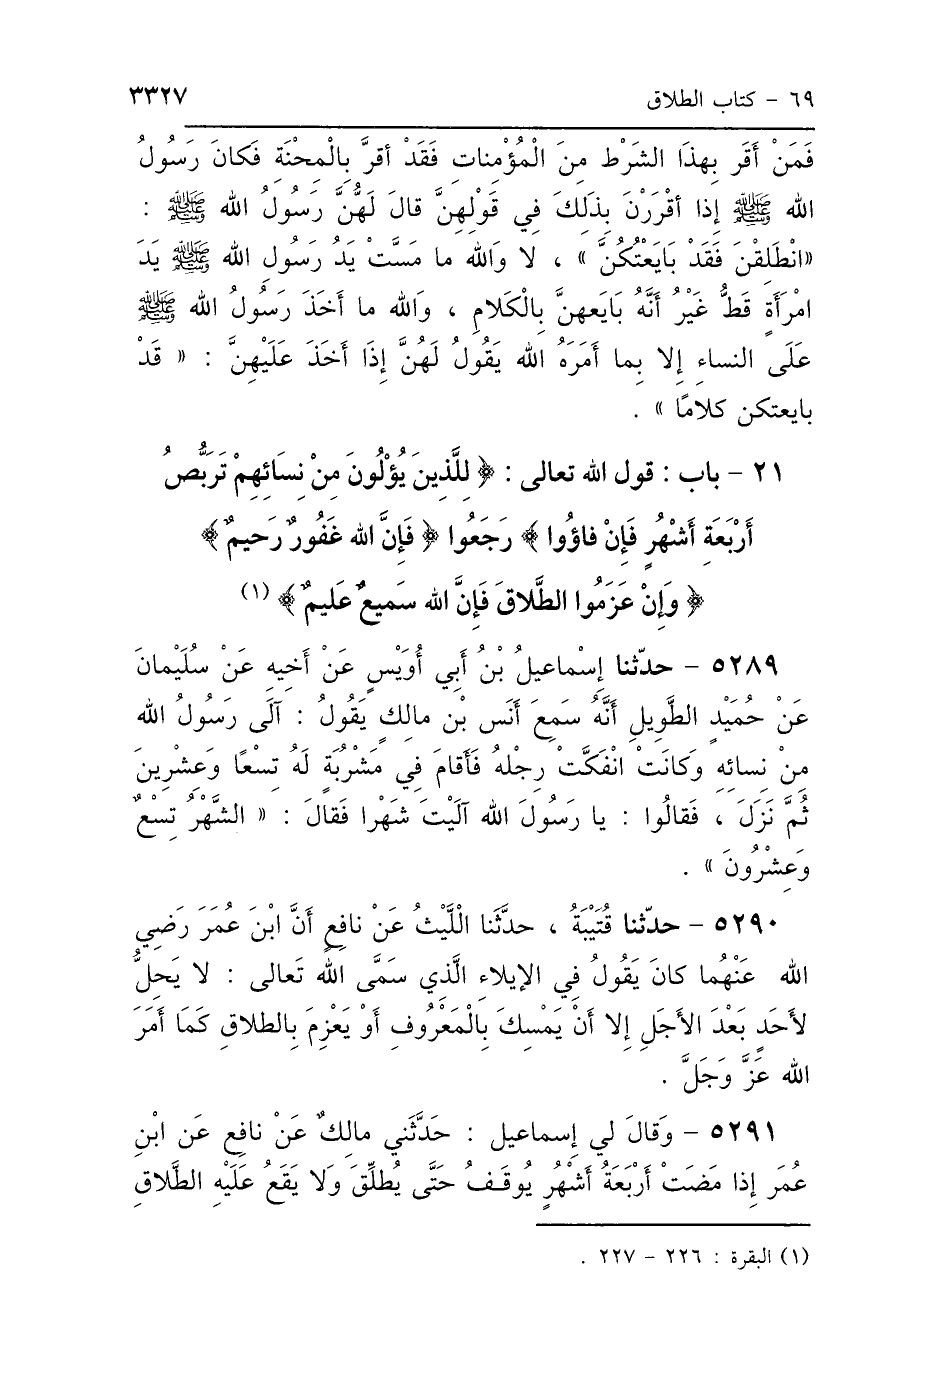 ٦٩ – كتاب الطلاق ٣٣٢٧
فَمَنْ أَقَر بِهذَا الشَرْطِ مِنَ الْمُؤْمِناتِ فَقَدْ أقرَّ بِالْمِحنَةِ فَكانَ رَسُولُ
الله ﷺ إذا أقْرَرْنَ بِذَلِكَ فِي قَوْلِهِنَّ قالَ لَهُنَّ رَسُولُ الله ﷺ :
«انْطَلِقْنَ فَقَدْ بَايَعْتُكُنَّ » ، لا وَالله ما مَسَّتْ يَدُ رَسُولِ الله ﷺ يَدَ
امْرَأَةٍ قَطُّ غَيْرُ أَنَّهُ بَايَعهنَّ بِالْكَلامِ ، وَالله ما أَخَذَ رَسُولُ الله ﷺ
عَلَى النساءِ إلا بِما أَمَرَهُ الله يَقُولُ لَهُنَّ إذَا أَخَذَ عَلَيْهِنَّ : « قَدْ
بايعتكن كلامًا » .
٢١ – باب : قول الله تعالى : ﴿ لِلَّذِينَ يُؤْلُونَ مِنْ نِسَائِهِمْ تَرَبُّصُ
أَرْبَعَةِ أَشْهُرٍ فَإنْ فاؤُوا ﴾ رَجَعُوا ﴿ فَإنَّ الله غَفُورٌ رَحِيمٌ ﴾
﴿ وَإنْ عَزَمُوا الطَّلاقَ فَإنَّ الله سَمِيعٌ عَلِيمٌ ﴾ (١)
٥٢٨٩ – حدّثنا إسْماعيلُ بْنُ أبي أُوَيْسٍ عَنْ أخِيهِ عَنْ سُلَيْمانَ
عَنْ حُمَيْدٍ الطَّوِيلِ أنَّهُ سَمِعَ أَنَس بْنِ مالِكٍ يَقُولُ : آلَى رَسُولُ الله
مِنْ نِسائِهِ وَكانَتْ انْفَكَّتْ رِجْلهُ فَأَقامَ فِي مَشْرُبَةٍ لَهُ تِسْعًا وَعِشْرِينَ
ثُمَّ نَزَلَ ، فَقالُوا : يا رَسُولَ الله آلَيْتَ شَهْرا فَقالَ : « الشَّهْرُ تِسْعٌ
وَعِشْرُونَ » .
٥٢٩٠ – حدّثنا قُتَيْبَةُ ، حدَّثَنا الْلَّيْثُ عَنْ نافِعٍ أَنَّ ابْنَ عُمَرَ رَضِي
الله عَنْهُما كانَ يَقُولُ فِي الإيلاءِ الَّذِي سَمَّى الله تَعالى : لا يَحِلُّ
لأحَدٍ بَعْدَ الأجَلِ إلا أنْ يَمْسِكَ بِالْمَعْرُوفِ أوْ يَعْزِمَ بِالطلاقِ كَمَا أمَرَ
الله عَزَّ وَجَلَّ .
٥٢٩١ – وَقالَ لي إسماعيل : حَدَّثَنِي مالِكٌ عَنْ نافِعِ عَن ابْنِ
عُمَر إذا مَضَتْ أَرْبَعَةُ أَشْهُرٍ يُوقَـفُ حَتَّى يُطلِّقَ وَلا يَقَعُ عَلَيْهِ الطَّلاقِ
(١) البقرة : ٢٢٦ – ٢٢٧ .